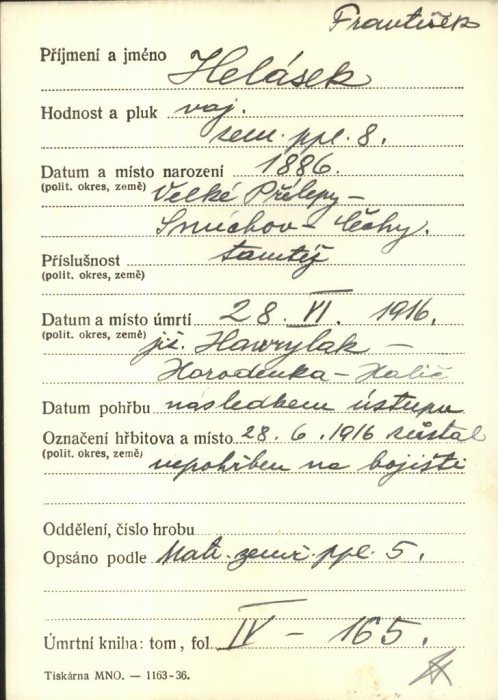 František
Příjmení a jméno Helásek
Hodnost a pluk voj.
zem. ppl. 8.
Datum a místo narození 1886.
(polit. okres, země) Velké Přílepy –
Smíchov – Čechy.
Příslušnost tamtéž
(polit. okres, země)
Datum a místo úmrtí 28. VI. 1916.
(polit. okres, země) již. Hawrylak –
Horodenka – Halič
Datum pohřbu následkem ústupu
Označení hřbitova a místo 28. 6. 1916 zůstal
(polit. okres, země) nepohřben na bojišti
Oddělení, číslo hrobu
Opsáno podle Mati. zemř. ppl. 5.
Úmrtní kniha: tom, fol. IV – 165.
Tiskárna MNO. — 1163-36.